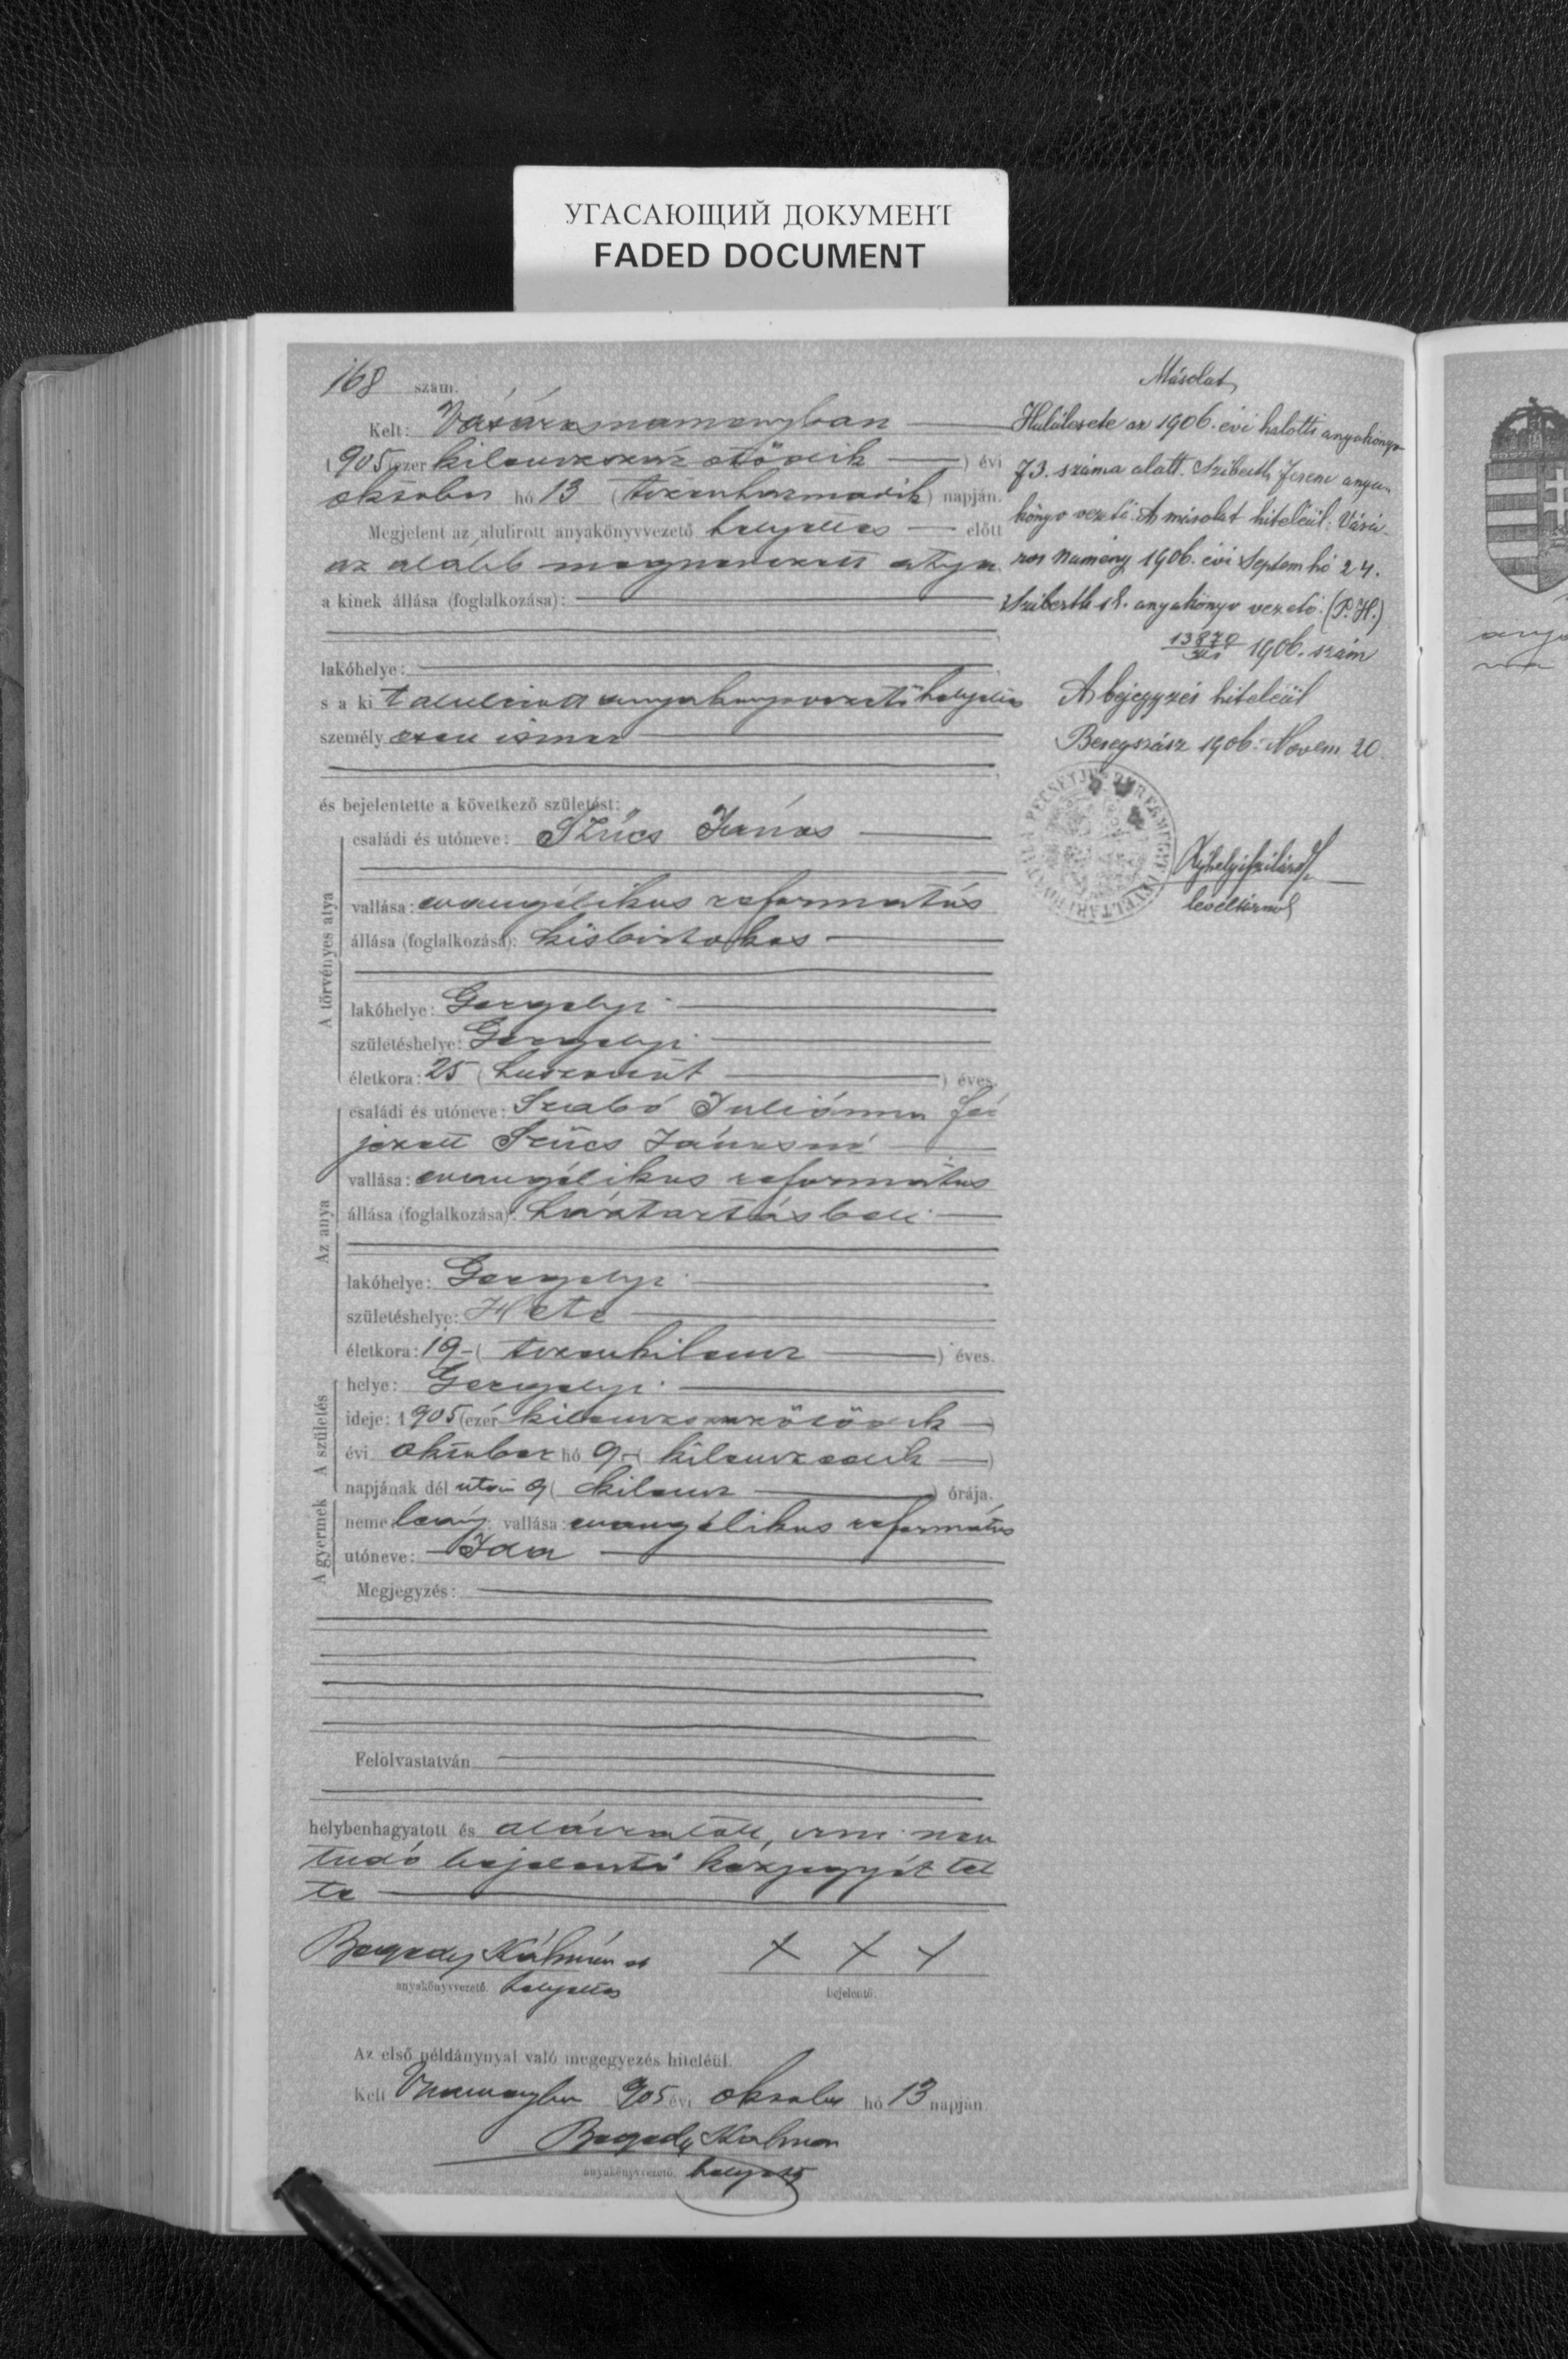 УГАСАЮЩИЙ ДОКУМЕНТ
FADED DOCUMENT
168 szám.
Kelt: Vásárosnaményban
1905 (ezer kilenczszáz ötödik) évi
október hó 13 (tizenharmadik) napján.
Megjelent az alulirott anyakönyvvezető helyettes előtt
az alább megnevezett atya
a kinek állása (foglalkozása):
lakóhelye:
s a kit alulirott anyakönyvvezető helyettes
személyesen ismer
és bejelentette a következő születést:
A törvényes atya
családi és utóneve: Szűcs János
vallása: evangélikus református
állása (foglalkozása): kisbirtokos
lakóhelye: Gergelyi
születéshelye: Gergelyi
életkora: 25 (huszonöt) éves.
Az anya
családi és utóneve: Szabó Juliánna fér
jezett Szűcs Jánosné
vallása: evangélikus református
állása (foglalkozása): háztartásbeli
lakóhelye: Gergelyi
születéshelye: Hete
életkora: 19 (tizenkilencz) éves.
A születés
helye: Gergelyi
ideje: 1905 (ezer kilenczszázötödik)
évi október hó 9 (kilenczedik)
napjának dél után 9 (kilencz) órája.
A gyermek
neme: leány; vallása: evangélikus református
utóneve: Ida
Megjegyzés:
Felolvastatván
helybenhagyatott és aláiratott, irni nem
tudó bejelentő kézjegyét tet
te
Bagady Kálmán
anyakönyvvezető. helyettes
X X X
bejelentő.
Az első példánynyal való megegyezés hiteléül.
Kelt Vnaményban 905 évi október hó 13 napján
Bagady Kálmán
anyakönyvvezető. helyettes
Másolat,
Halálesete az 1906. évi halotti anyakönyv
73. száma alatt. Sziberth Ferenc anya-
könyv vezető. A másolat hiteléül: Vásá-
ros Namény 1906. évi Septem hó 24.
Sziberth s. k. anyakönyv vezető. (P. H.)
13870 1906. szám
A bejegyzés hiteléül
Beregszász 1906. Novem 20.
levéltárnok